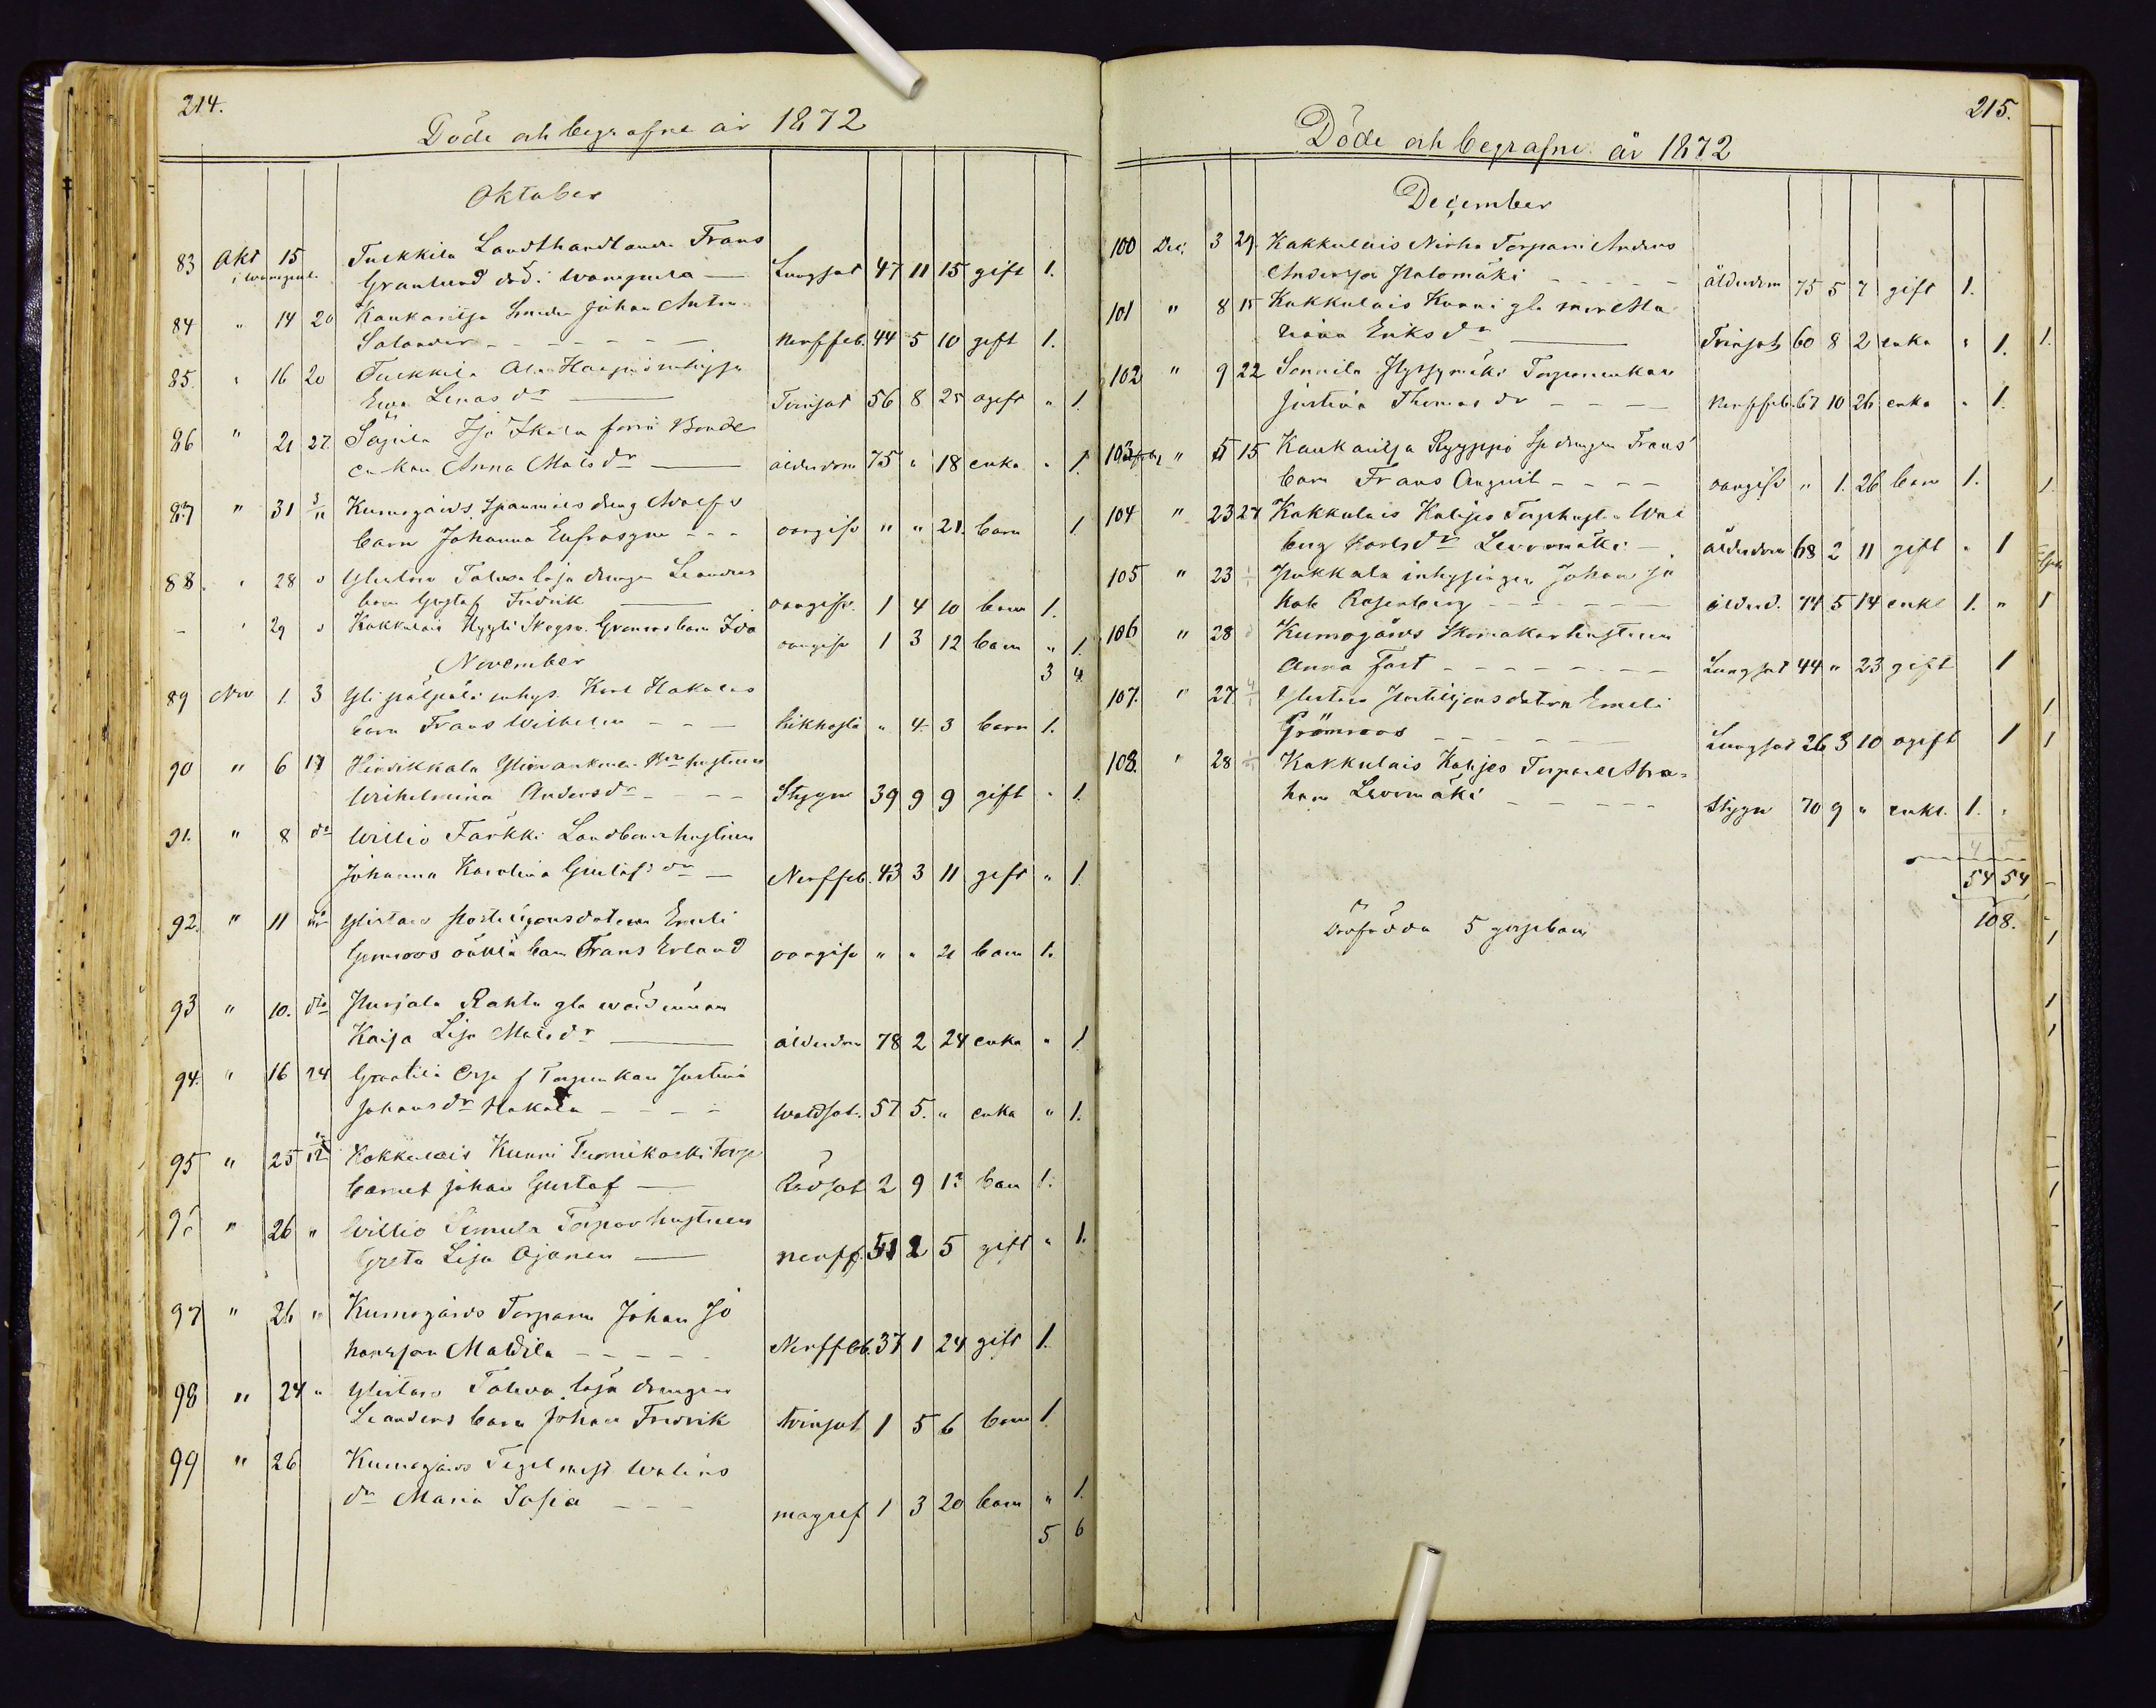 214.
Döde och begrafne år 1872
Oktober
83 Okt 15 Tulkkila Landthandlanden Frans
Granlund död i Wampula Lungsot 47 11 15 gift 1.
84 " 14 20 Kaukaritsa Smeden Johan Anton
Salander Nerffeb. 44 5 10 gift 1.
85. " 16 20 Tulkkila
Ewa Lenasdr Tvinsot 56 8 25 ogift " 1
86 " 21 27 Bonde
enkan Anna Matsdr ålderdom 75 " 18 enka " 1.
87 " 31 3/11 Kumogårds dreng Adolfs
barn Johanna Eufrosyne oangifv " " 21. barn 1
88. " 28 Ylistaro Talvialaja drengen Leanders
barn Gustaf Fredrik oangifv. 1 4 10 barn 1.
" 29 Kakkulais Hyyli Skogsv. Granroos barn Ida oangifv 1 3 12 barn " 1.
3 4
November
89 Nov 1. 3 Yli pälpälä inhys. Karl Hakalas
barn Frans Wilhelm Kikhosta " 4 3 barn 1.
90 " 6 17 Hintikkala hustrun
Wilhelmina Andersdr Styggn 39 9 9 gift " 1.
91. " 8 do Willio Färkki Landbondhustrun
Johanna Karolina Gustafsdr Nerffeb. 43 3 11 gift " 1.
92. " 11 Ylistaro Postiljonsdottern Emeli
Grönroos oäkta barn Frans Erland oangifv " " 21 barn 1.
93 " 10. dito Purjala Rahtu gla
Kaisa Lisa Matsdr ålderdom 78 2 24 enka " 1
94. " 16 24 Torpenkan Justina
Johansdr Hakala Wattsot. 57 5. " enka " 1.
95 " 25 Kakkulais Kunni Tuomikoski Torp
barnet Johan Gustaf Rödsot 2 9 barn 1.
" 26 " Willio Simula Torpar hustrun
Greta Lisa Ojanen nerff. 51 2 5 gift " 1.
97 " 26 " Kumogårds Torparen Johan Jo
hansson Mattila Nerffeb. 37 1 24 gift 1.
98 " 24 " Ylistaro drengen
Leanders barn Johan Fredrik tvinsot 1 5 6 barn 1.
99 " 26 Kumogårds Tegelmest. Walins
dr Maria Sofia magref 1 3 20 barn " 1.
5 6
215.
Döde och begrafne år 1872
December
100 Dec. 3 29. Kakkulais Torparen Anders
Andersson Palomäki ålderdom 75 5 7 gift 1.
101 " 8 15 Kakkulais Kunni gla
Eriksdr Tvinsot 60 8 2 enka " 1.
102 " 9 22 Sonnila Torparenkan
Justina Thomasdr Nerffeb. 67 10 26 enka " 1.
103 " 5 15 Kaukaritsa Ryyppö drengen Frans'
barn Frans August oangifv " 1. 26 barn 1.
104 " 23 27 Kakkulais Katijes Torphustr. Wal
berg Karlsdr Levomäki ålderdom 68 2 11 gift " 1
105 " 23 Pukkala inhysingen Johan Ja
kob Rosenberg ålderd. 74 5 14 enkl 1. "
106 " 28 Kumogårds Skomakarhustrun
Anna Fast Lungsot 44 " 23 gift 1
107. " 27. Ylistaro Postiljonsdottern Emeli
Grönroos Lungsot 26 3 10 ogift 1
108. " 28 Kakkulais Katijes Torparen Abra
ham Levomäki Styggn 70 9 " enkl. 1. "
54 54
108.
Dödfödda 5 gossebarn